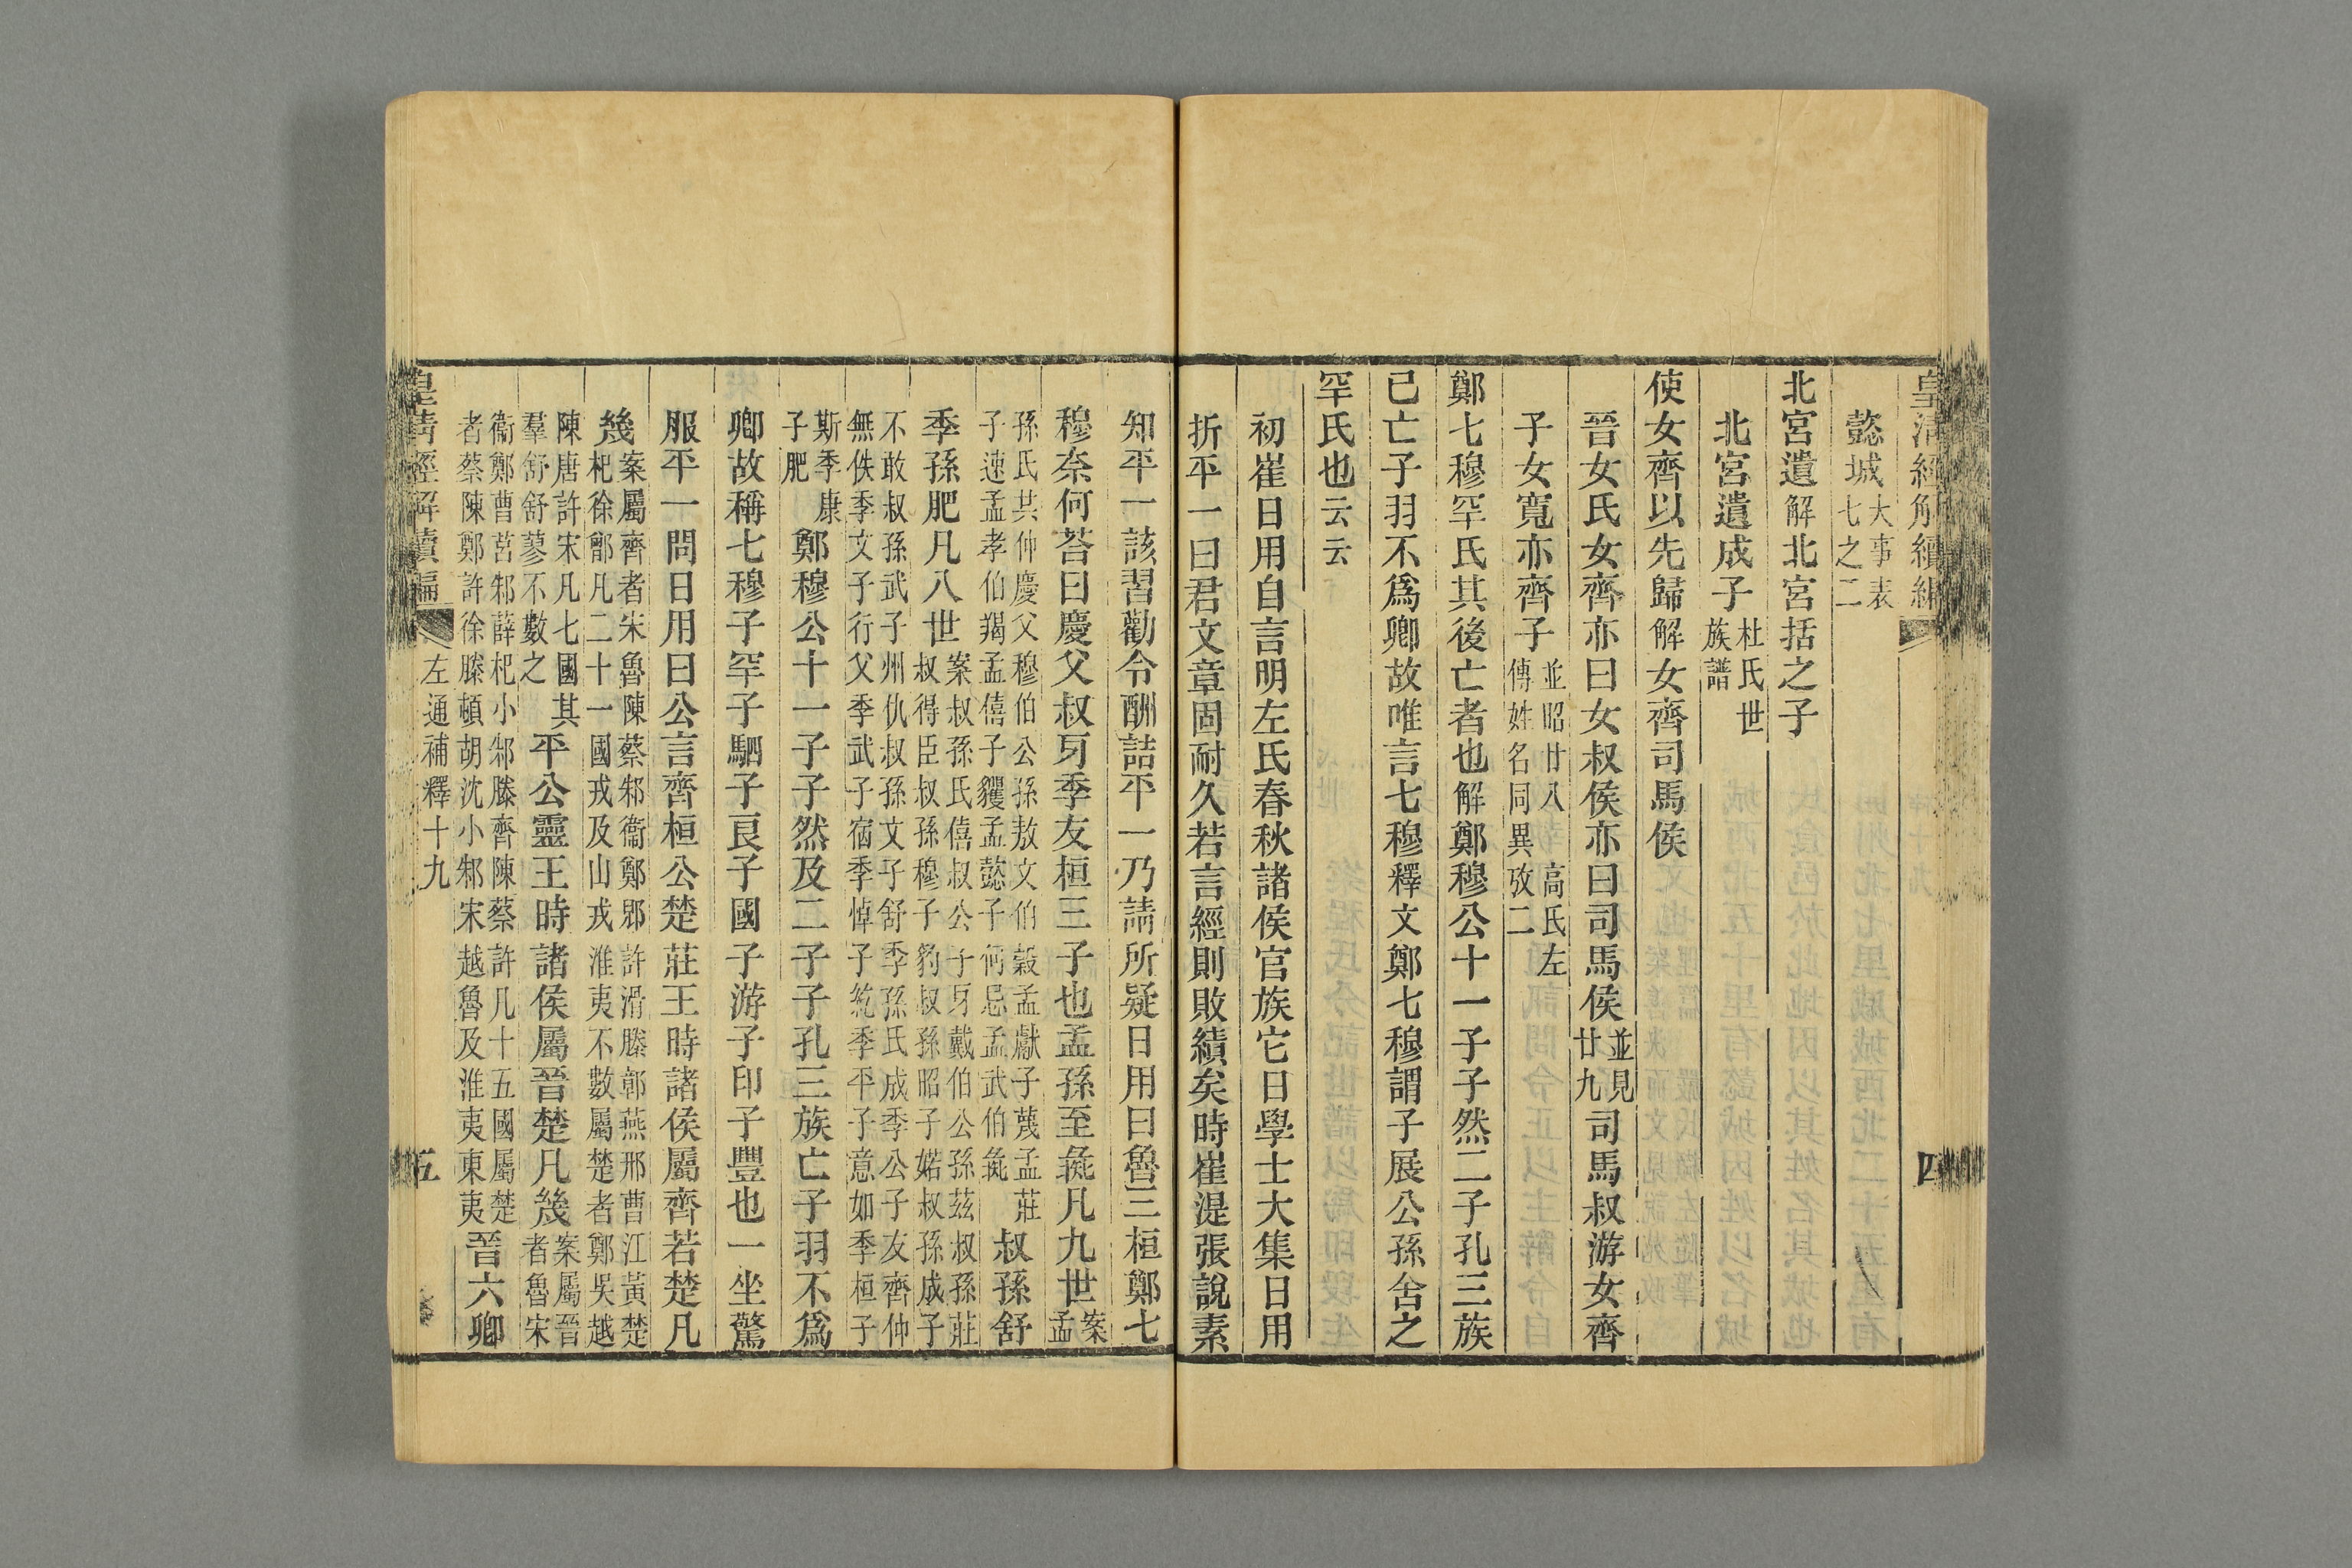 皇清經解續編
四
懿城大事表七之二
北宮遺解北宮括之子
北宮遺成子杜氏世族譜
使女齊以先歸解女齊司馬侯
晉女氏女齊亦曰女叔侯亦曰司馬侯並見廿九司馬叔游女齊
子女寬亦齊子並昭廿八高氏左傳姓名同異攷二
鄭七穆罕氏其後亡者也解鄭穆公十一子子然二子孔三族
已亡子羽不爲卿故唯言七穆釋文鄭七穆謂子展公孫舍之
罕氏也云云
初崔日用自言明左氏春秋諸侯官族它日學士大集日用
折平一曰君文章固耐久若言經則敗績矣時崔湜張說素
知平一該習勸令酬詰平一乃請所疑日用曰魯三桓鄭七
穆奈何荅曰慶父叔牙季友桓三子也孟孫至彘凡九世案孟
孫氏共仲慶父穆伯公孫敖文伯穀孟獻子蔑孟莊子速孟孝伯羯孟僖子貜孟懿子何忌孟武伯彘叔孫舒
季孫肥凡八世案叔孫氏僖叔公子牙戴伯公孫茲叔孫莊叔得臣叔孫穆子豹叔孫昭子婼叔孫成子
不敢叔孫武子州仇叔孫文子舒季孫氏成季公子友齊仲無佚季文子行父季武子宿季悼子紇季平子意如季桓子
斯季康子肥鄭穆公十一子子然及二子子孔三族亡子羽不爲
卿故稱七穆子罕子駟子良子國子游子印子豐也一坐驚
服平一問日用曰公言齊桓公楚莊王時諸侯屬齊若楚凡
幾案屬齊者宋魯陳蔡邾衞鄭郳許滑滕鄣燕邢曹江黃楚杞徐鄫凡二十一國戎及山戎淮夷不數屬楚者鄭吳越
陳唐許宋凡七國其羣舒舒蓼不數之平公靈王時諸侯屬晉楚凡幾案屬晉者魯宋
衞鄭曹莒邾薛杞小邾滕齊陳蔡許凡十五國屬楚者蔡陳鄭許徐滕頓胡沈小邾宋越魯及淮夷東夷晉六卿
皇清經解續編
左通補釋十九
五